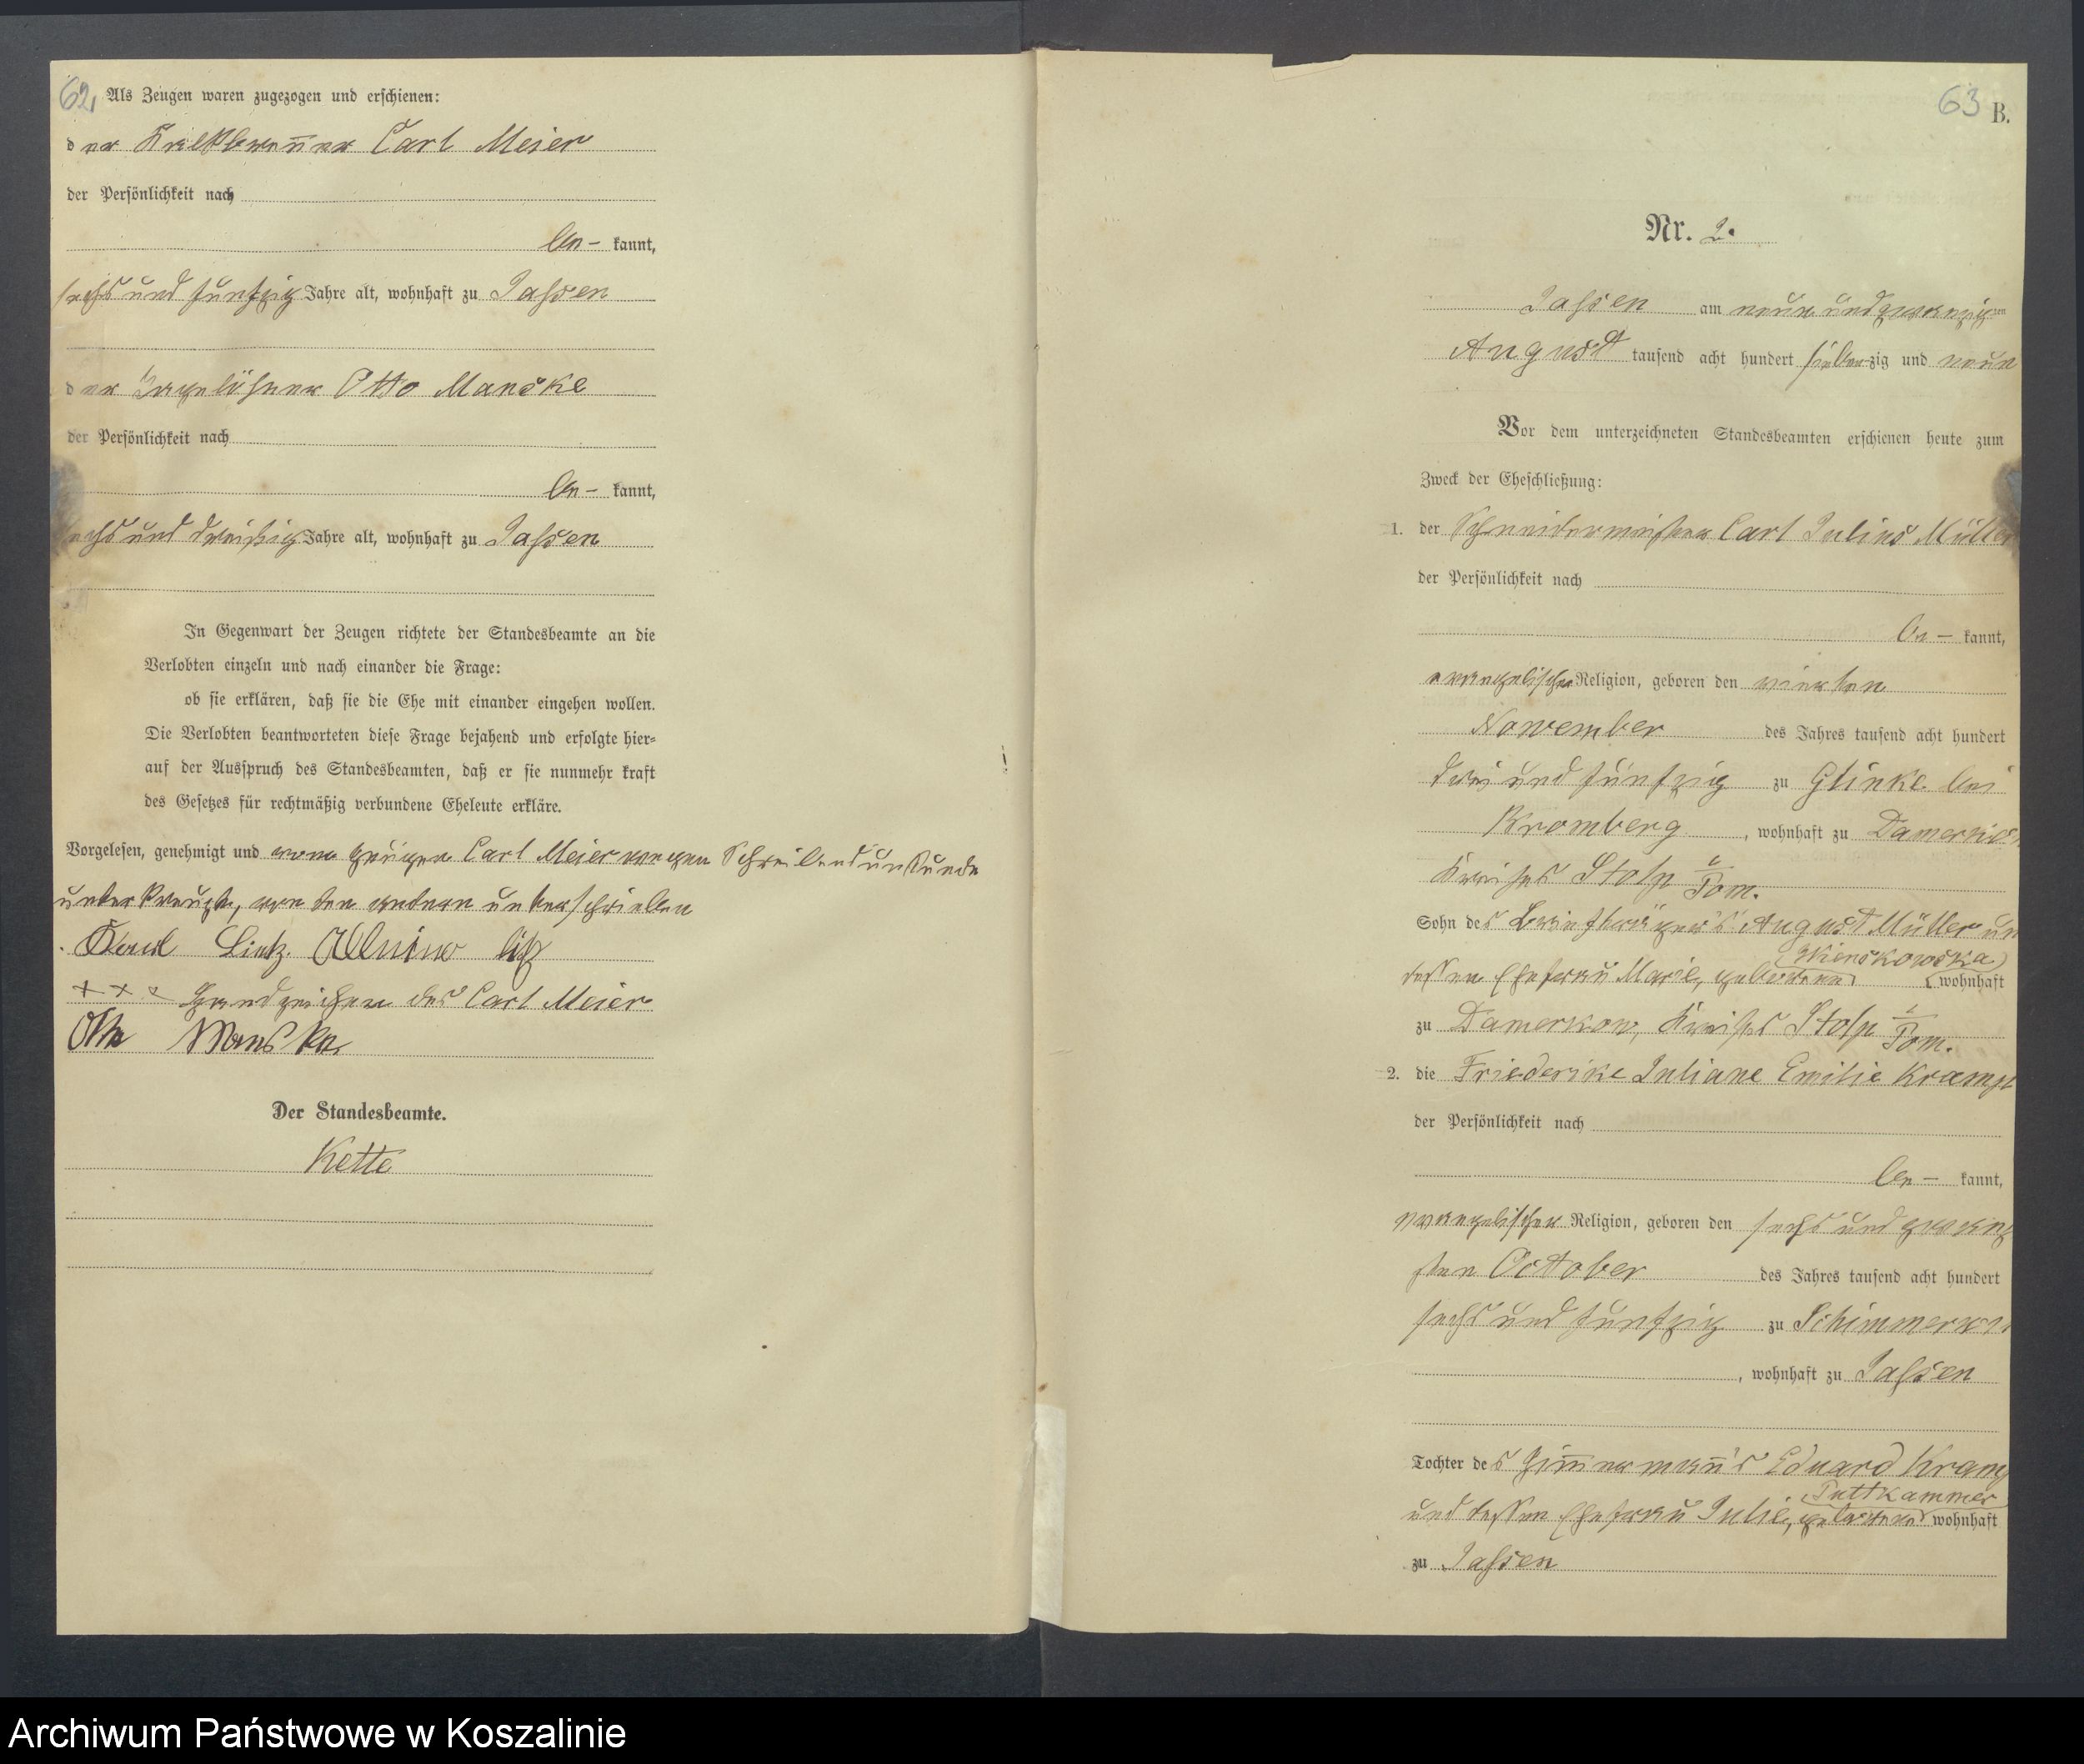 62,
Als Zeugen waren zugezogen und erschienen:
der Kalkbrenner Carl Meier
der Persönlichkeit nach
be- kannt,
sechs und funfzig Jahre alt, wohnhaft zu Jassen
der Tagelöhner Otto Manske
der Persönlichkeit nach
be- kannt,
sechs und dreißig Jahre alt, wohnhaft zu Jassen
In Gegenwart der Zeugen richtete der Standesbeamte an die
Verlobten einzeln und nach einander die Frage:
ob sie erklären, daß sie die Ehe mit einander eingehen wollen.
Die Verlobten beantworteten diese Frage bejahend und erfolgte hier-
auf der Ausspruch des Standesbeamten, daß er sie nunmehr kraft
des Gesetzes für rechtmäßig verbundene Eheleute erkläre.
Vorgelesen, genehmigt und vom Zeugen Carl Meier wegen Schreibensunkunde
unterkreuzt, von den andern unterschrieben
Lietz.
+ + + Handzeichen des Carl Meier
Otto Manske
Der Standesbeamte.
Kette
63 B.
Nr. 2.
Jassen am neun und zwanzigsten
August tausend acht hundert siebenzig und neun
Vor dem unterzeichneten Standesbeamten erschienen heute zum
Zweck der Eheschließung:
1. der Schneidermeister Carl Julius Müller
der Persönlichkeit nach
be- kannt,
evangelischer Religion, geboren den vierten
November des Jahres tausend acht hundert
drei und funfzig zu Glinke bei
Bromberg, wohnhaft zu Damerkow
Kreises Stolp i/Pom.
Sohn des Briefträgers August Müller un
dessen Ehefrau Marie, geborenen wohnhaft
zu Damerkow, Kreises Stolp i/Pom.
2. die Friederike Juliane Emilie Kramp
der Persönlichkeit nach
be- kannt,
evangelischer Religion, geboren den sechs und zwanzig
sten October des Jahres tausend acht hundert
sechs und funfzig zu Schimmerwi
, wohnhaft zu Jassen
Tochter des Zimmermann's Eduard Kramp
Puttkammer
und dessen Ehefrau Julie, geborenen wohnhaft
zu Jassen
Archiwum Państwowe w Koszalinie